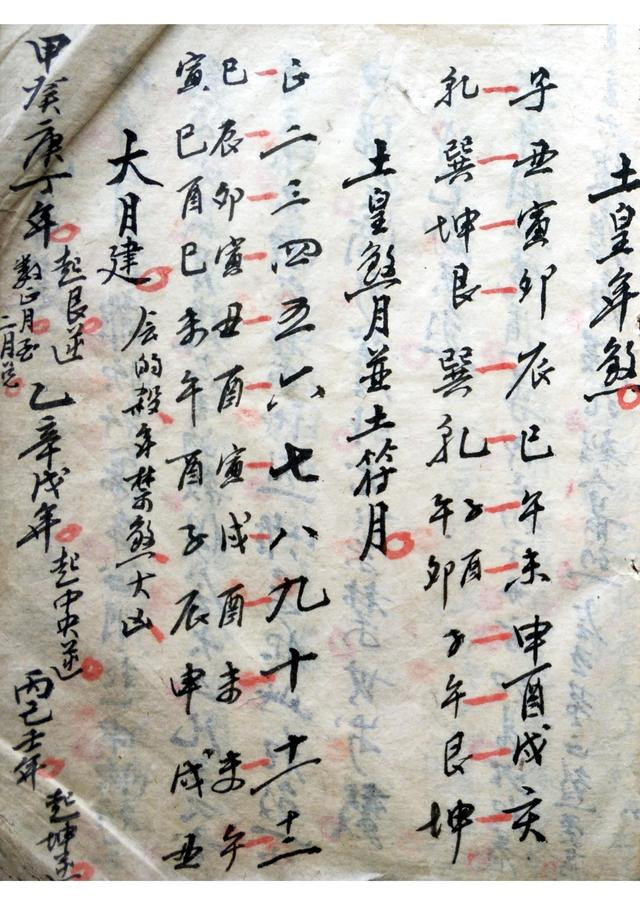 土皇年煞
子丑寅卯辰巳午未申酉戌亥
乳巽坤艮巽乳子午酉卯子午艮坤
土皇煞月並土符月
正二三四五六七八九十十一十二
巳辰卯寅丑酉寅戌酉未未午
寅巳酉巳未午酉子辰申戌丑
大月建 会的殺年禁煞大凶
甲癸庚丁年 起艮逆 数正月至二月兑 乙辛戊年 起中央逆 丙己壬年 起坤逆